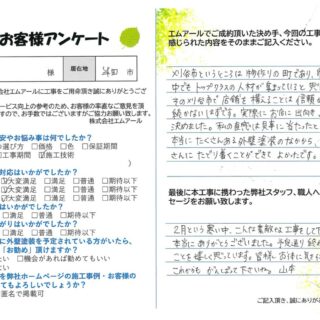 お客様アンケート
様
居住地
市
株式会社エムアールに工事をご用命頂き誠にありがとうござ
ービス向上の参考のため、お客様の率直なご意見を頂
すので、お手数ではございますがご協力お願い致します。
株式会社エムアール
安やお悩み事は何でしたか？
の選び方 □価格 □色 □保証期間
□工事期間 ☑施工技術
対応はいかがでしたか？
☑大変満足 □満足 □普通 □期待以下
はいかがでしたか？
☑大変満足 □満足 □普通 □期待以下
がりはいかがでしたか？
□満足 □普通 □期待以下
に外壁塗装を予定されている方がいたら、
「お勧め」頂けますか？
たい □機会があれば勧めてもいい
ない
を弊社ホームページの施工事例・お客様の
てもよろしいでしょうか？
匿名で掲載可
エムアールでご成約頂いた決め手、今回の工事
感じられた内容をそのままご記入ください。
刈谷市というところは物作りの町であり、
中でもトップクラスの人材が集まっていると思い
その刈谷市で信頼を得ることは
続かないはずです。実際にお店に出向き、
決めました。私の直感は見事に当たったと
本当にたくさんある外壁塗装のなかから、
さんにたどり着くことができてよかったです。
最後に本工事に携わった弊社スタッフ、職人へ
セージをお願い致します。
2月という寒い中、こんな素敵な工事をして
本当にありがとうございました。予定通り終
ことを嬉しく思っています。皆様、お体に気を
これからも がんばって下さいね。山本
ご記入頂き、誠にありがとう